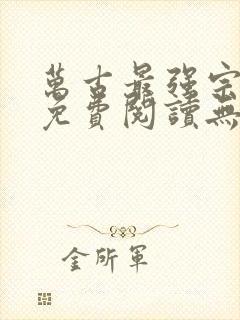 萬古最強宗
免費閱讀無
金所軍